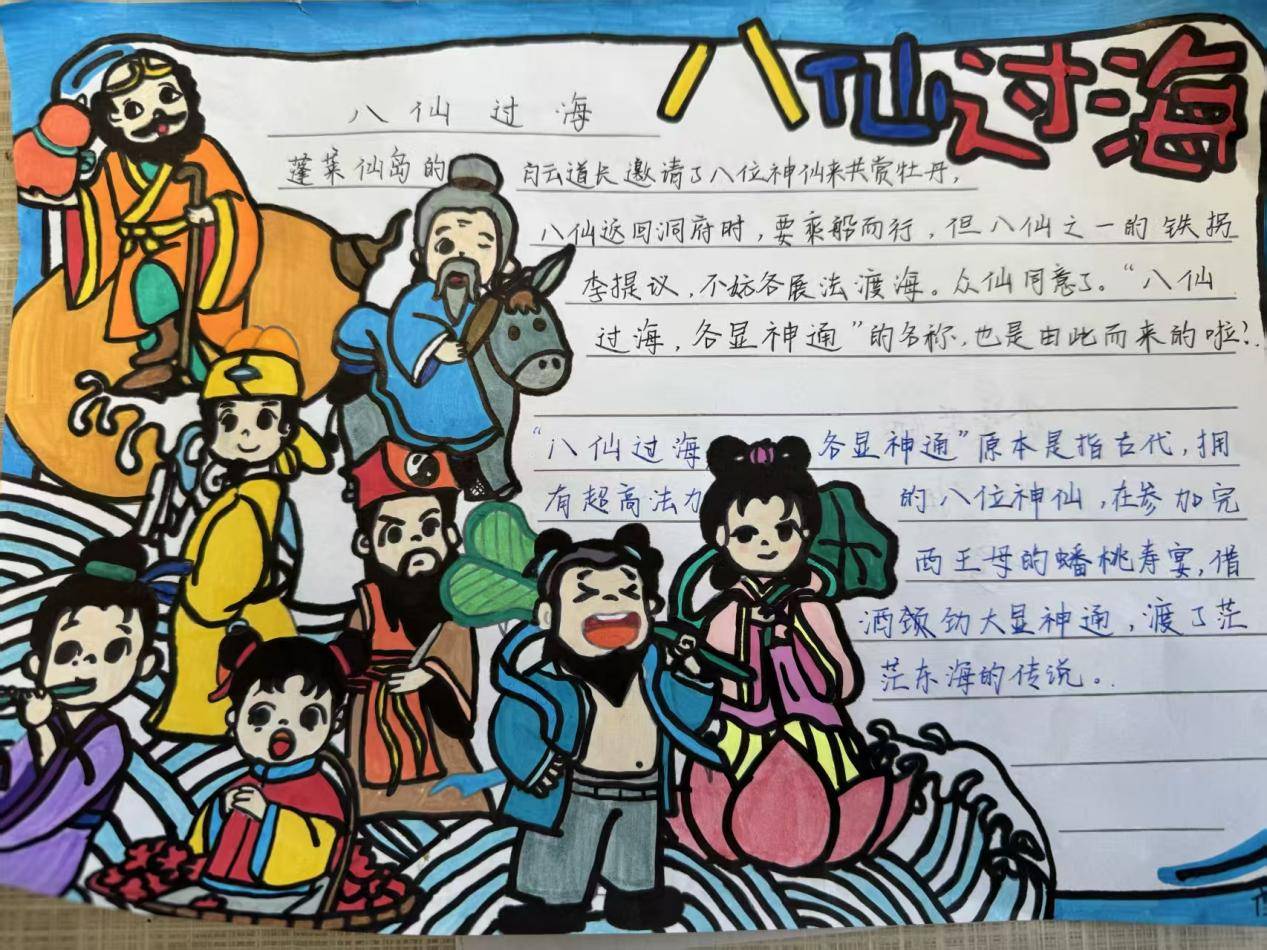 八仙过海
八仙过海
蓬莱仙岛的白云道长邀请了八位神仙来共赏牡丹，
八仙返回洞府时，要乘船而行，但八仙之一的铁拐
李提议，不妨各展法渡海。众仙同意了。“八仙
过海，各显神通”的名称，也是由此而来的啦！
“八仙过海各显神通”原本是指古代，拥
有超高法力的八位神仙，在参加完
西王母的蟠桃寿宴，借
酒颈劲大显神通，渡了茫
茫东海的传说。